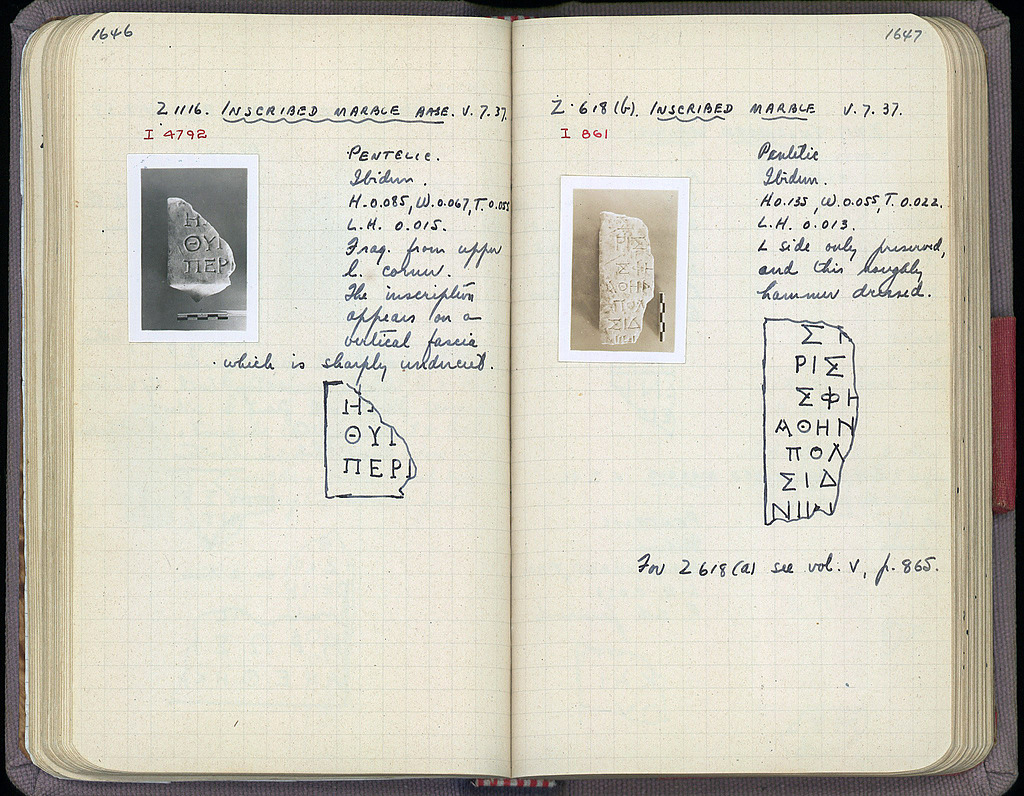 1646
Z 1116. INSCRIBED MARBLE BASE. V.7.37.
I 4792
PENTELIC.
Ibidem.
H. 0.085, W. 0.067, T. 0.055
L.H. 0.015.
Frag. from upper
l. corner.
The inscription
appears on a
vertical fascia
which is sharply undercut.
Η
ΘΥ
ΠΕΡΙ
1647
Z 618(b). INSCRIBED MARBLE V.7.37.
I 861
Pentelic
Ibidem.
H 0.135, W. 0.055, T. 0.022.
L.H. 0.013.
L side only preserved,
and this roughly
hammer dressed.
Σ
ΡΙΣ
ΣΦΗ
ΑΘΗΝ
ΠΟΛ
ΣΙΔ
For Z 618(a) see vol. V, p. 865.